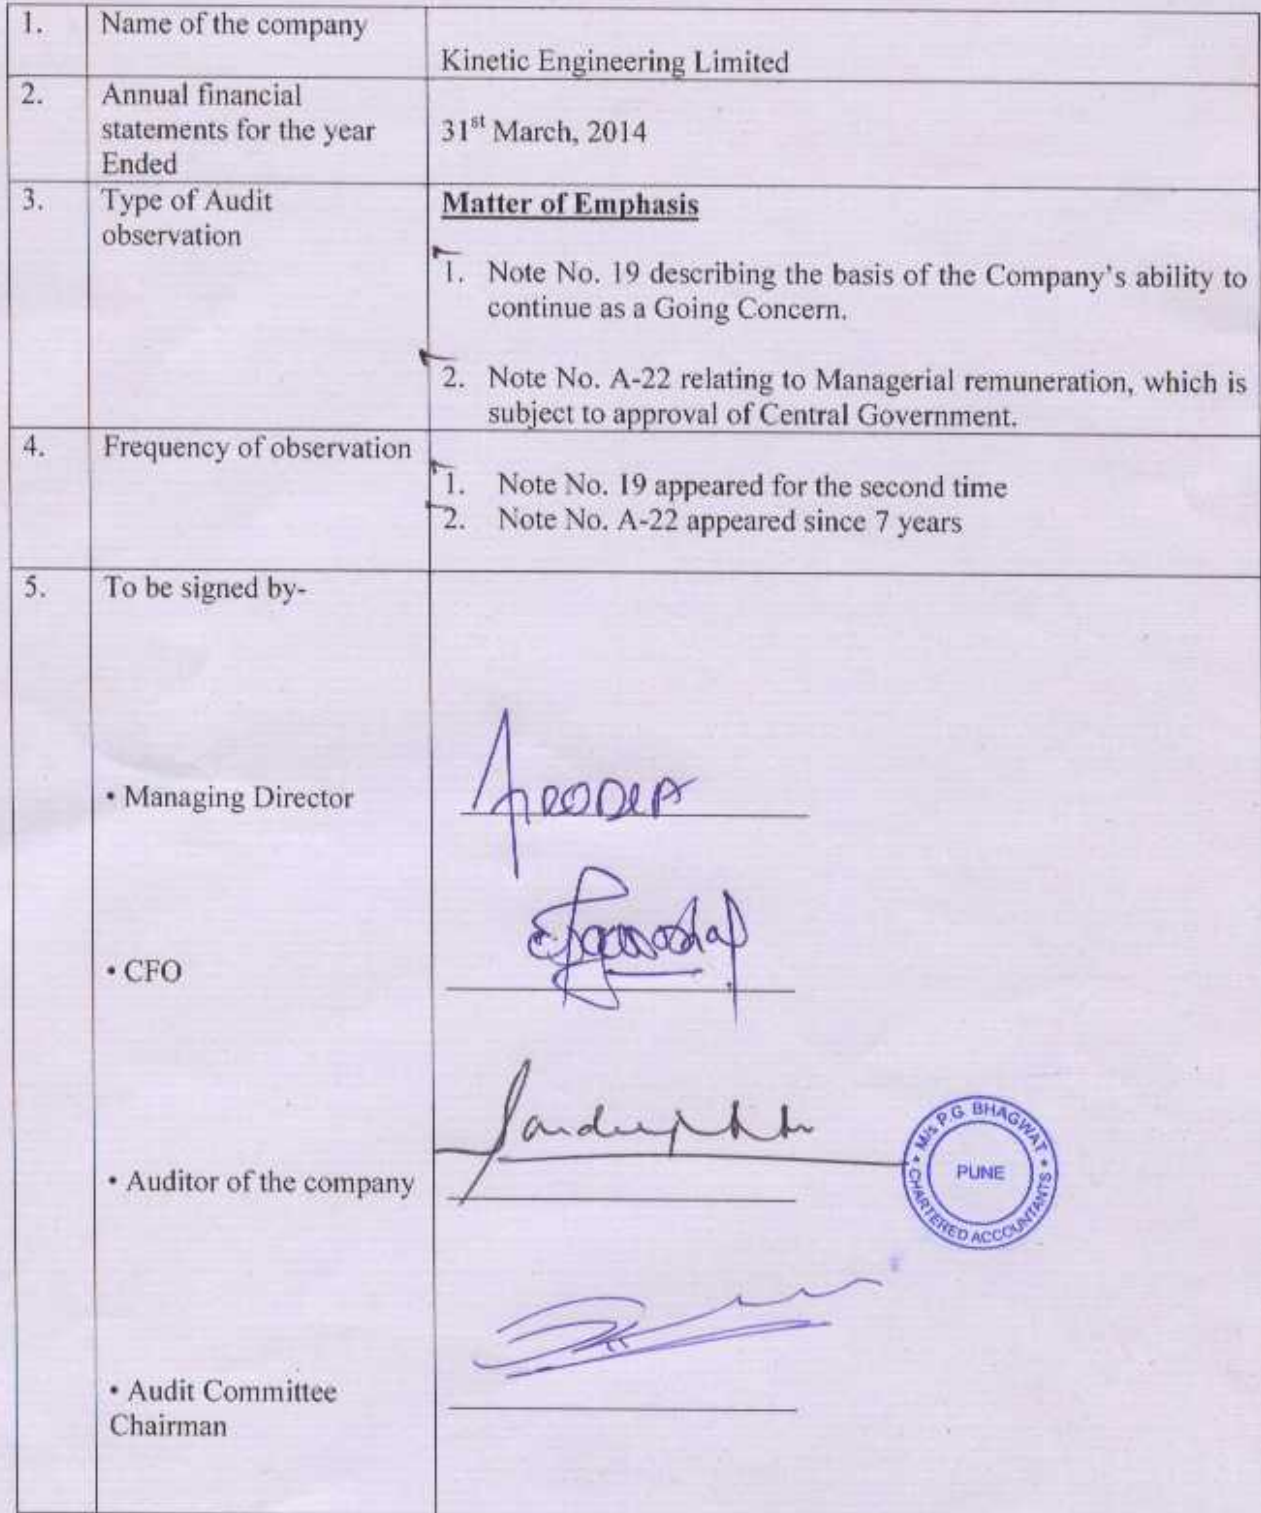 1. Name of the company
Kinetic Engineering Limited
2. Annual financial
statements for the year
Ended
31st March, 2014
3. Type of Audit
observation
Matter of Emphasis
1. Note No. 19 describing the basis of the Company's ability to
continue as a Going Concern.
2. Note No. A-22 relating to Managerial remuneration, which is
subject to approval of Central Government.
4. Frequency of observation
1. Note No. 19 appeared for the second time
2. Note No. A-22 appeared since 7 years
5. To be signed by-
• Managing Director
• CFO
• Auditor of the company
M/s P.G. BHAGWAT
PUNE
CHARTERED ACCOUNTANTS
• Audit Committee
Chairman